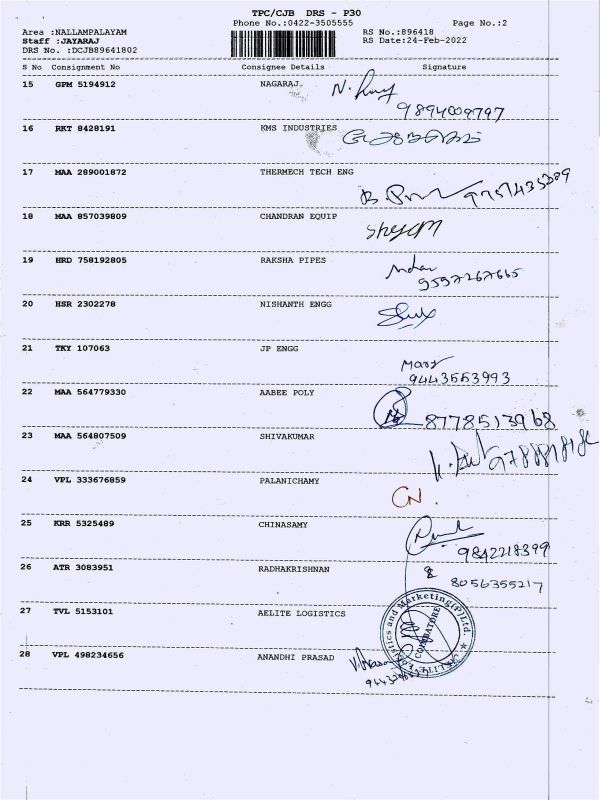 TPC/CJB DRS - P30
Phone No.:0422-3505555 Page No.:2
Area :NALLAMPALAYAM RS No.:896418
Staff :JAYARAJ RS Date:24-Feb-2022
DRS No. :DCJB89641802
S No Consignment No Consignee Details Signature
15 GPM 5194912 NAGARAJ
9894009797
16 RKT 8428191 KMS INDUSTRIES
17 MAA 289001872 THERMECH TECH ENG
18 MAA 857039809 CHANDRAN EQUIP
Shyam
19 HRD 758192805 RAKSHA PIPES
9597267665
20 HSR 2302278 NISHANTH ENGG
21 TKY 107063 JP ENGG
Mary
9443553993
22 MAA 564779330 AABEE POLY
8778513968
23 MAA 564807509 SHIVAKUMAR
24 VPL 333676859 PALANICHAMY
CN.
25 KRR 5325489 CHINASAMY
9842218399
26 ATR 3083951 RADHAKRISHNAN
8056355217
27 TVL 5153101 AELITE LOGISTICS
Logistics and Marketing(P)Ltd.
COIMBATORE
28 VPL 498234656 ANANDHI PRASAD